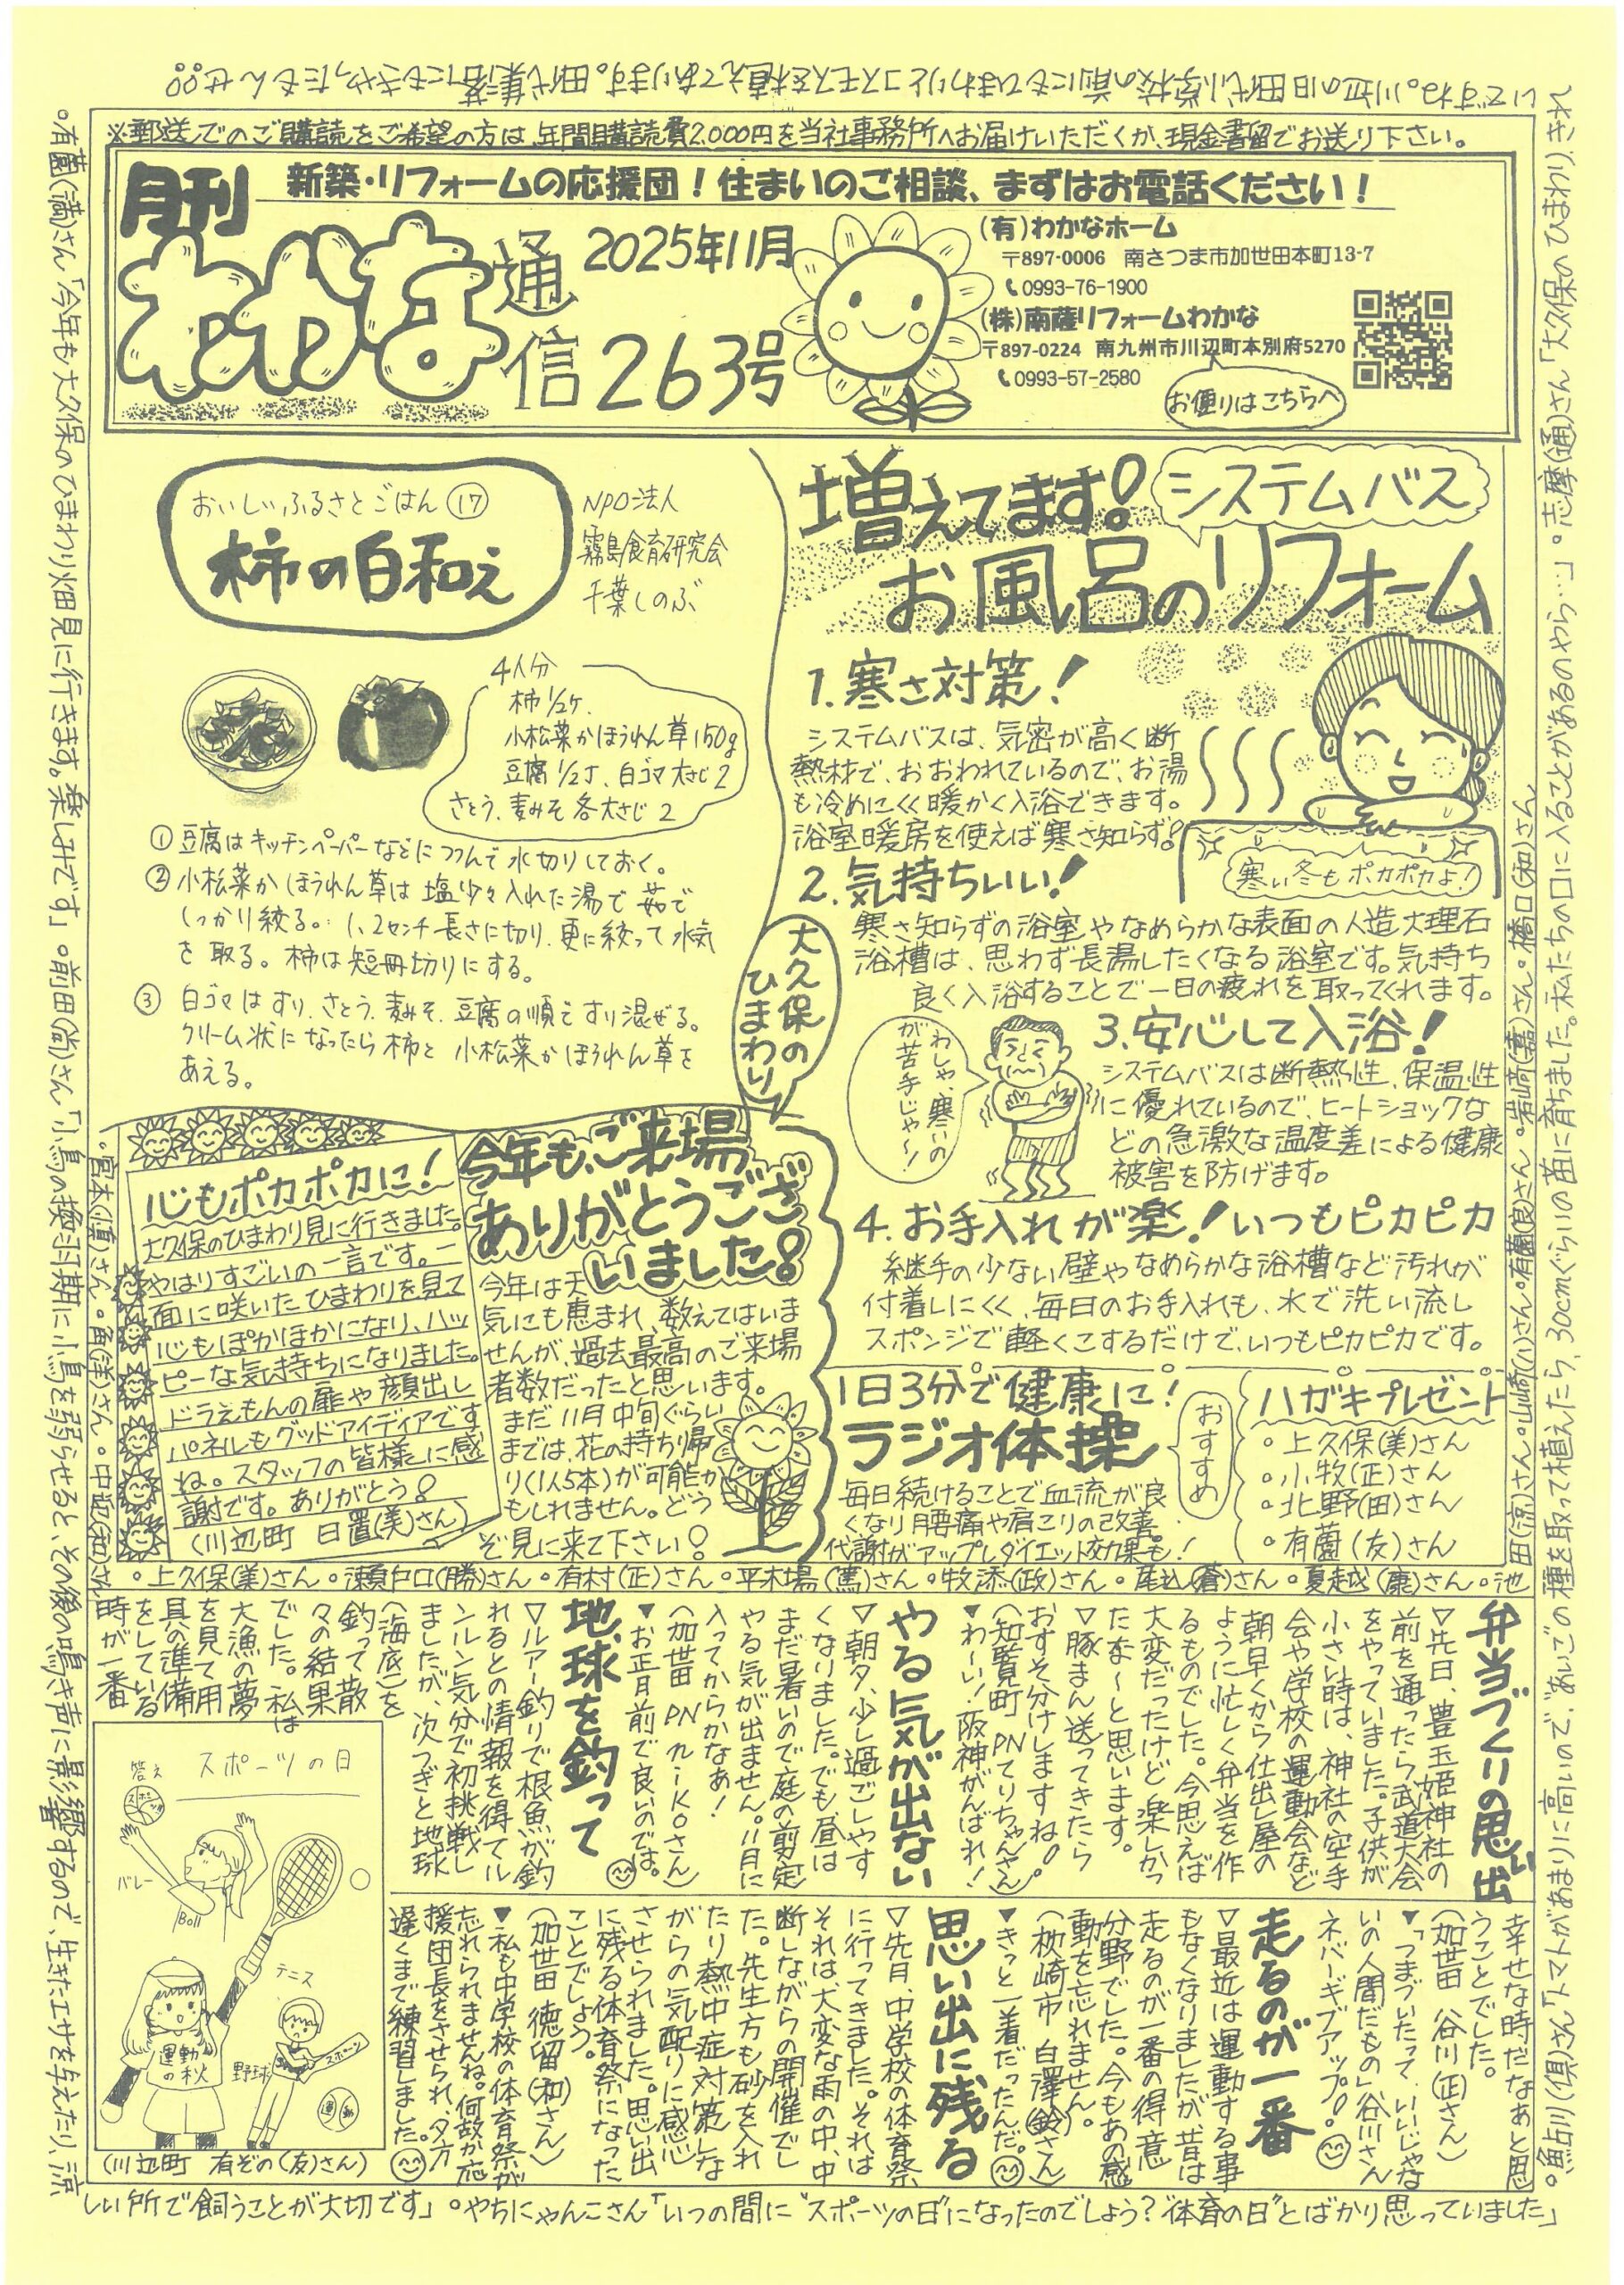 ※郵送でのご購読をご希望の方は、年間購読費2,000円を当社事務所へお届けいただくか、現金書留でお送り下さい。
月刊
新築・リフォームの応援団！住まいのご相談、まずはお電話ください！
わかな通信
2025年11月
263号
(有)わかなホーム
〒897-0006 南さつま市加世田本町13-7
0993-76-1900
(株)南薩リフォームわかな
〒897-0224 南九州市川辺町本別府5270
0993-57-2580
お便りはこちらへ
おいしいふるさとごはん⑰
柿の白和え
NPO法人
霧島食育研究会
千葉しのぶ
4人分
柿1/2ケ、
小松菜かほうれん草150g
豆腐1/2丁、白ゴマ大さじ2
さとう、麦みそ各大さじ2
①豆腐はキッチンペーパーなどにつつんで水切りしておく。
②小松菜かほうれん草は塩少々入れた湯で茹で
しっかり絞る。1、2センチ長さに切り、更に絞って水気
を取る。柿は短冊切りにする。
③白ゴマはすり、さとう、麦みそ、豆腐の順ですり混ぜる。
クリーム状になったら柿と小松菜かほうれん草を
あえる。
増えてます！
システムバス
お風呂のリフォーム
1.寒さ対策！
システムバスは、気密が高く断
熱材で、おおわれているので、お湯
も冷めにくく暖かく入浴できます。
浴室暖房を使えば寒さ知らず！
寒い冬もポカポカよ！
2.気持ちいい！
寒さ知らずの浴室やなめらかな表面の人造大理石
浴槽は、思わず長湯したくなる浴室です。気持ち
良く入浴することで一日の疲れを取ってくれます。
わしゃ、寒いの
が苦手じゃ〜！
3.安心して入浴！
システムバスは断熱性、保温性
に優れているので、ヒートショックな
どの急激な温度差による健康
被害を防げます。
4.お手入れが楽！いつもピカピカ
継手の少ない壁やなめらかな浴槽など汚れが
付着しにくく、毎日のお手入れも、水で洗い流し
スポンジで軽くこするだけで、いつもピカピカです。
大久保の
ひまわり
今年も、ご来場
ありがとうござ
いました！
今年は天
気にも恵まれ、数えてはいま
せんが、過去最高のご来場
者数だったと思います。
まだ11月中旬ぐらい
までは、花の持ち帰
り(1人5本)が可能か
もしれません。どう
ぞ見に来て下さい！
心もポカポカに！
大久保のひまわり見に行きました。
やはりすごいの一言です。一
面に咲いたひまわりを見て
心もぽかぽかになり、ハッ
ピーな気持ちになりました。
ドラえもんの扉や顔出し
パネルもグッドアイディアです
ね。スタッフの皆様に感
謝です。ありがとう！
(川辺町 日置(美)さん)
1日3分で健康に！
ラジオ体操
おすすめ
毎日続けることで血流が良
くなり腰痛や肩こりの改善。
代謝がアップしダイエット効果も！
ハガキプレゼント
・上久保(美)さん
・小牧(正)さん
・北野(田)さん
・有薗(友)さん
・上久保(美)さん・瀬戸口(勝)さん・有村(正)さん・平木場(篤)さん・牧添(政)さん・尾込(蒼)さん・夏越(康)さん・池
田(涼)さん・山崎(八)さん・有薗(良)さん・岩崎(嘉)さん・橋口(和)さん
・宮本(慎)さん・角(洋)さん・中迫(和)さん
弁当づくりの思い出
▽先日、豊玉姫神社の
前を通ったら武道大会
をやっていました。子供が
小さい時は、神社の空手
会や学校の運動会など
朝早くから仕出し屋の
ように忙しく弁当を作
るものでした。今思えば
大変だったけど楽しかっ
たな〜と思います。
▽豚まん送ってきたら
おすそ分けしますね。
(知覧町 PNてりちゃんさん)
▼わーい！阪神がんばれ！
やる気が出ない
▽朝夕、少し過ごしやす
くなりました。でも昼は
まだ暑いので庭の剪定
やる気が出ません。11月に
入ってからかなぁ！
(加世田 PNカーKOさん)
▼お正月前で良いのでは。
地球を釣って
▽ルアー釣りで根魚が釣
れるとの情報を得てル
ンルン気分で初挑戦し
ましたが、次つぎと地球
(海底)を
釣って散
々の結果
でした。私は
大漁の夢
を見て用
具の準備
をしている
時が一番
幸せな時だなあと思
うことでした。
(加世田 谷川(正)さん)
▼「つまづいたって、いいじゃな
いの人間だもの」谷川さん
ネバーギブアップ！
走るのが一番
▽最近は運動する事
もなくなりましたが昔は
走るのが一番の得意
分野でした。今もあの感
動を忘れません。
(枕崎市 白澤(鈴)さん)
▼きっと一着だったんだ。
思い出に残る
▽先月、中学校の体育祭
に行ってきました。それは
それは、大変な雨の中、中
断しながらの開催でし
た。先生方も砂を入れ
たり熱中症対策しな
がらの気配りに感心
させられました。思い出
に残る体育祭になった
ことでしょう。
(加世田 徳留(和)さん)
▼私も中学校の体育祭が
忘れられませんね。何故か応
援団長をさせられ、夕方
遅くまで練習しました。
スポーツの日
答え
バレー
Boll
テニス
運動
の秋
野球
スポーツ
運動
(川辺町 有ぞの(友)さん)
・鮎川(倶)さん「トマトがあまりに高いので、あいごの種を取って植えたら、30cmぐらいの苗に育ちました。私たちの口に入ることがあるのやら…」・志摩(通)さん「大久保のひまわり、きれ
いですね。川辺の旧田代小学校の前にもひまわりとコスモスを植えてあります。田代集落にもきやったもんせ。」
・有薗(満)さん「今年も大久保のひまわり畑見に行きます。楽しみです」・前田(尚)さん「小鳥の換羽期に小鳥を弱らせると、その後の鳴き声に影響するので、生きたエサを与えたり、涼
しい所で飼うことが大切です」・やちにゃんこさん「いつの間に"スポーツの日"になったのでしょう？"体育の日"とばかり思っていました」